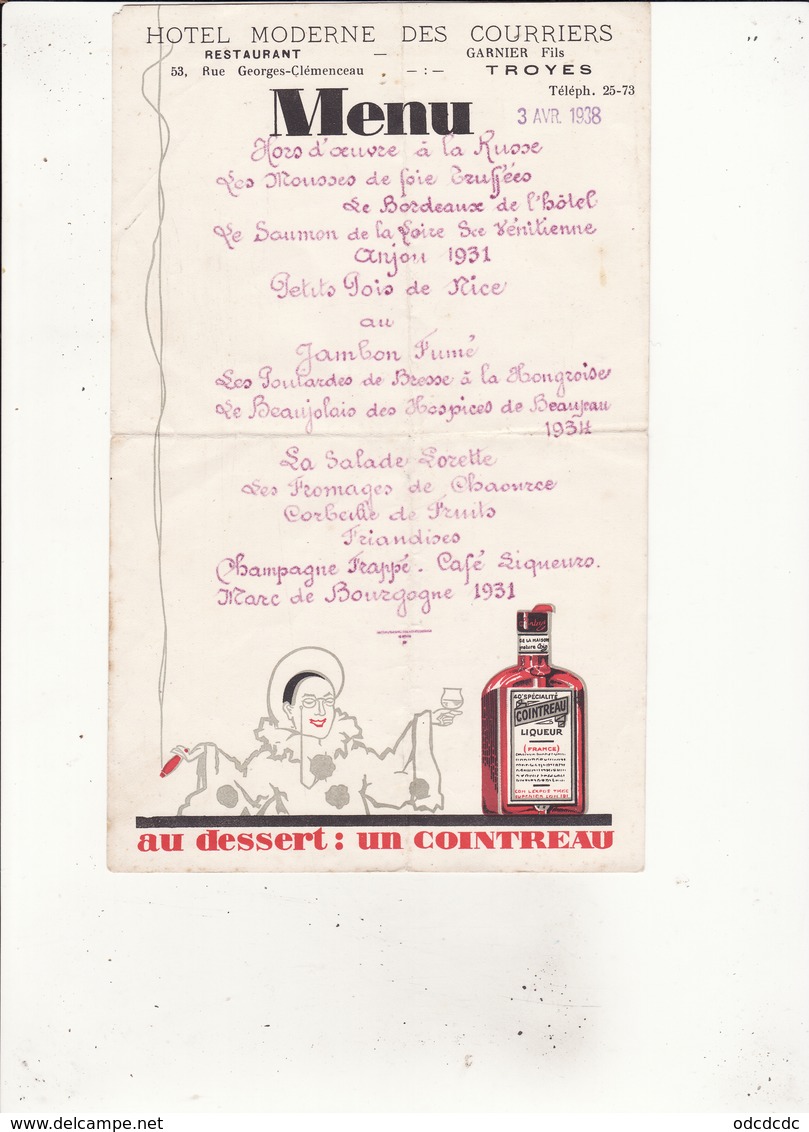 HOTEL MODERNE DES COURRIERS
RESTAURANT — GARNIER Fils
53, Rue Georges-Clémenceau —:— TROYES
Téléph. 25-73
Menu
3 AVR. 1938
Hors d'œuvre à la Russe
Les Mousses de foie Truffées
Le Bordeaux de l'hôtel
Le Saumon de la Loire Sce Vénitienne
Anjou 1931
Petits Pois de Nice
au
Jambon Fumé
Les Poulardes de Bresse à la Hongroise
Le Beaujolais des Hospices de Beaujeau
1934
La Salade Lorette
Les Fromages de Chaource
Corbeille de Fruits
Friandises
Champagne Frappé. Café Liqueurs.
Marc de Bourgogne 1931
DE LA MAISON
40° SPÉCIALITÉ
COINTREAU
LIQUEUR
(FRANCE)
au dessert: un COINTREAU
odcdcdc